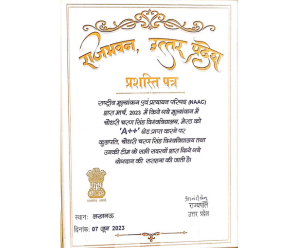 राजभवन, उत्तर प्रदेश
प्रशस्ति पत्र
राष्ट्रीय मूल्यांकन एवं प्रत्यायन परिषद (NAAC)
द्वारा मार्च, 2023 में किये गये मूल्यांकन में
चौधरी चरण सिंह विश्वविद्यालय, मेरठ को
'A++' ग्रेड प्राप्त करने पर
कुलपति, चौधरी चरण सिंह विश्वविद्यालय तथा
उनकी टीम के सभी सदस्यों द्वारा किये गये
योगदान की सराहना की जाती है।
राज्यपाल
उत्तर प्रदेश
स्थान: लखनऊ
दिनांक: 07 जून 2023